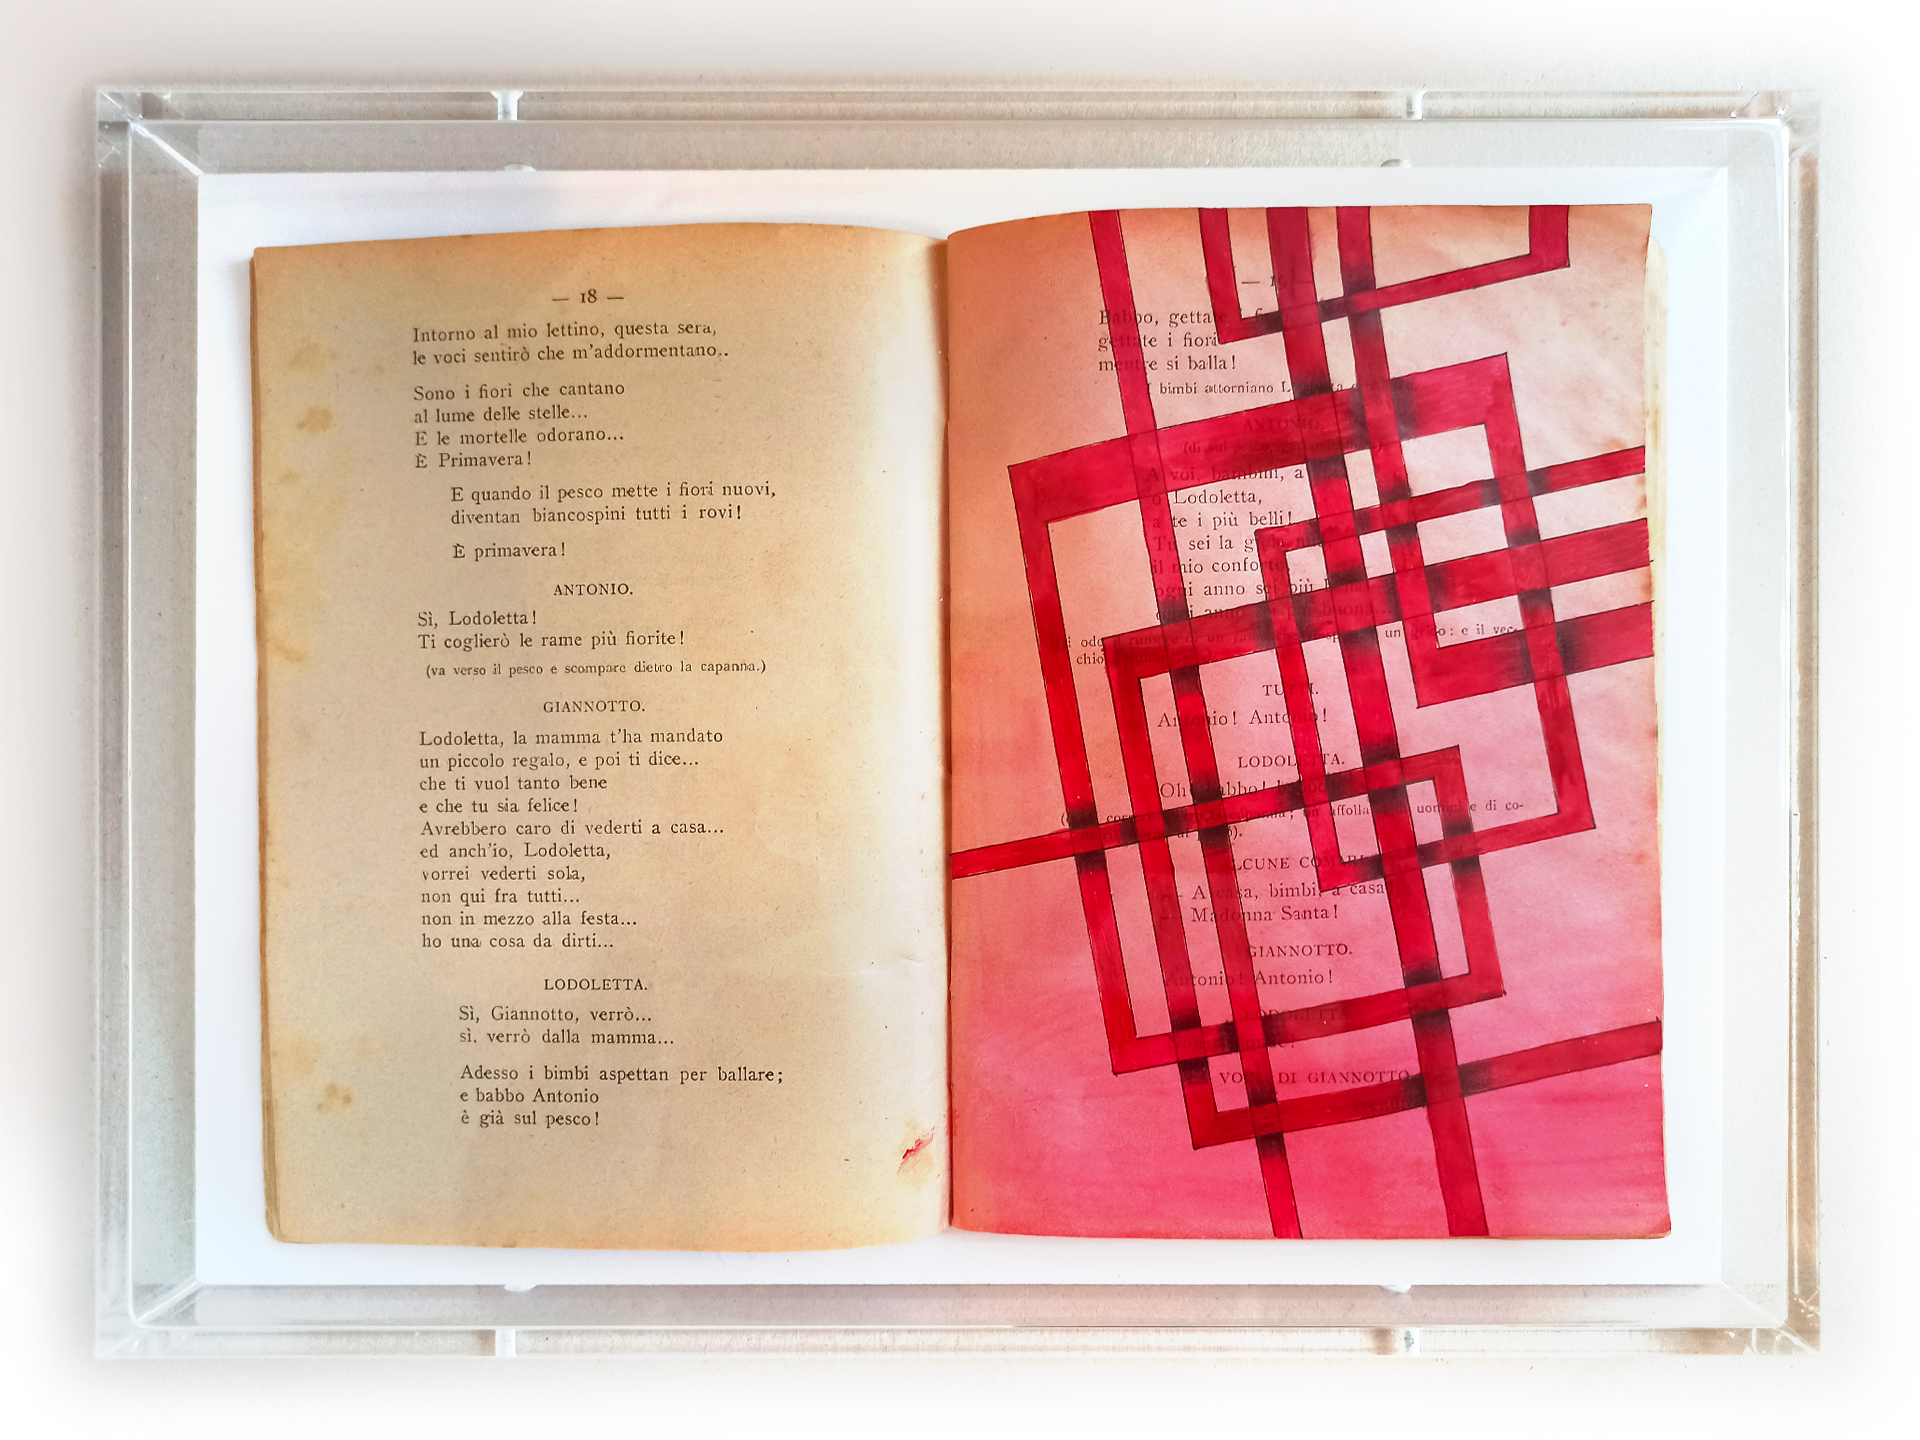 — 18 —
Intorno al mio lettino, questa sera,
le voci sentirò che m'addormentano..
Sono i fiori che cantano
al lume delle stelle...
E le mortelle odorano...
È Primavera!
E quando il pesco mette i fiori nuovi,
diventan biancospini tutti i rovi!
È primavera!
ANTONIO.
Sì, Lodoletta!
Ti coglierò le rame più fiorite!
(va verso il pesco e scompare dietro la capanna.)
GIANNOTTO.
Lodoletta, la mamma t'ha mandato
un piccolo regalo, e poi ti dice...
che ti vuol tanto bene
e che tu sia felice!
Avrebbero caro di vederti a casa...
ed anch'io, Lodoletta,
vorrei vederti sola,
non qui fra tutti...
non in mezzo alla festa...
ho una cosa da dirti...
LODOLETTA.
Sì, Giannotto, verrò...
sì. verrò dalla mamma...
Adesso i bimbi aspettan per ballare;
e babbo Antonio
è già sul pesco!
Babbo, gettate i
gettate i fiori
mentre si balla!
I bimbi attorniano
ANTONIO.
A voi, bambini, a
o Lodoletta,
a te i più belli!
Tu sei la
il mio conforto,
ogni anno sei più
ogni anno più buona...
un grido: e il vec-
chio
TUTTI.
Antonio! Antonio!
LODOLETTA.
Oh! babbo!
affolla uomini e di co-
ALCUNE COMARI
— A casa, bimbi, a casa!
— Madonna Santa!
GIANNOTTO.
Antonio! Antonio!
LODOLETTA
VOCE DI GIANNOTTO